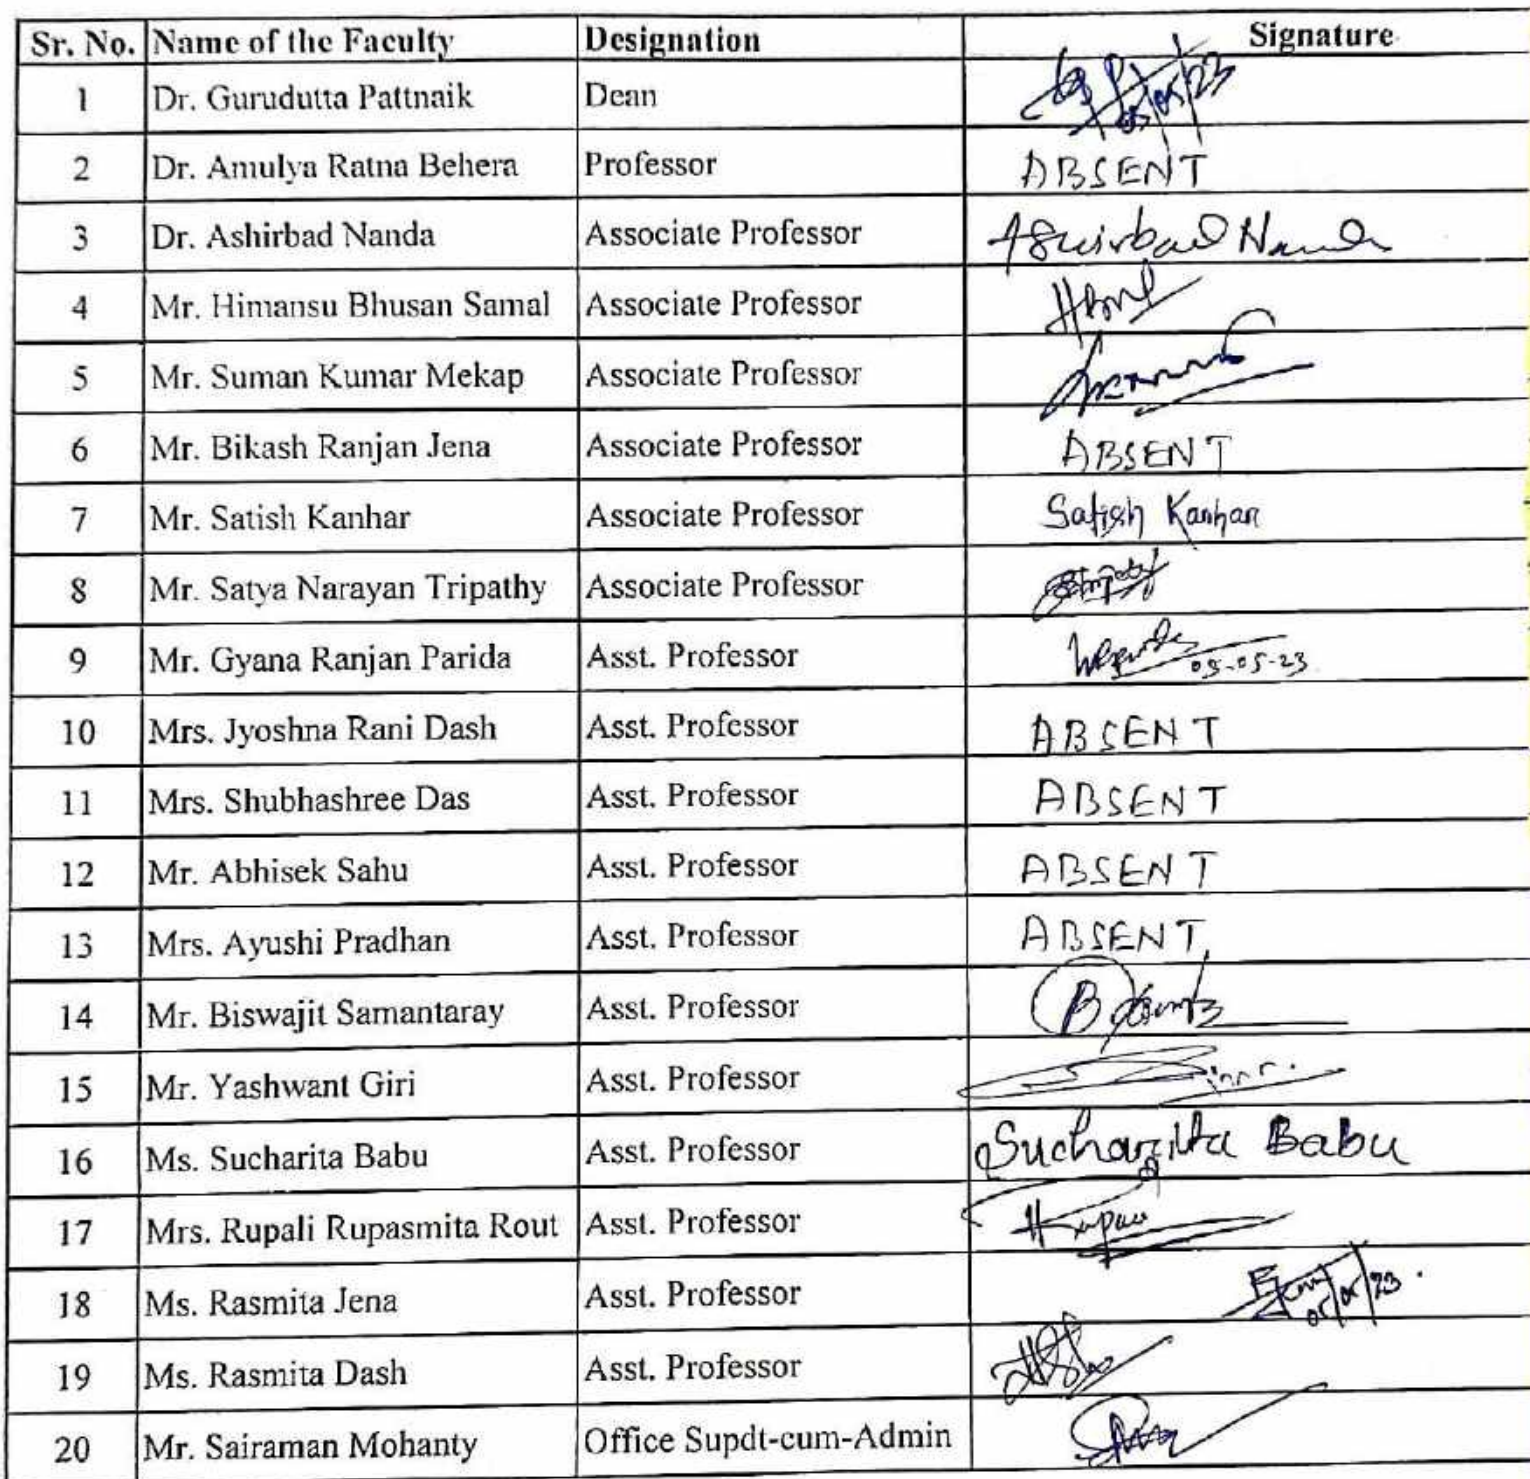 Sr. No. Name of the Faculty Designation Signature
1 Dr. Gurudutta Pattnaik Dean
2 Dr. Amulya Ratna Behera Professor ABSENT
3 Dr. Ashirbad Nanda Associate Professor Ashirbad Nanda
4 Mr. Himansu Bhusan Samal Associate Professor
5 Mr. Suman Kumar Mekap Associate Professor
6 Mr. Bikash Ranjan Jena Associate Professor ABSENT
7 Mr. Satish Kanhar Associate Professor Satish Kanhar
8 Mr. Satya Narayan Tripathy Associate Professor
9 Mr. Gyana Ranjan Parida Asst. Professor 05-05-23
10 Mrs. Jyoshna Rani Dash Asst. Professor ABSENT
11 Mrs. Shubhashree Das Asst. Professor ABSENT
12 Mr. Abhisek Sahu Asst. Professor ABSENT
13 Mrs. Ayushi Pradhan Asst. Professor ABSENT
14 Mr. Biswajit Samantaray Asst. Professor
15 Mr. Yashwant Giri Asst. Professor
16 Ms. Sucharita Babu Asst. Professor Sucharita Babu
17 Mrs. Rupali Rupasmita Rout Asst. Professor
18 Ms. Rasmita Jena Asst. Professor 05/05/23
19 Ms. Rasmita Dash Asst. Professor
20 Mr. Sairaman Mohanty Office Supdt-cum-Admin